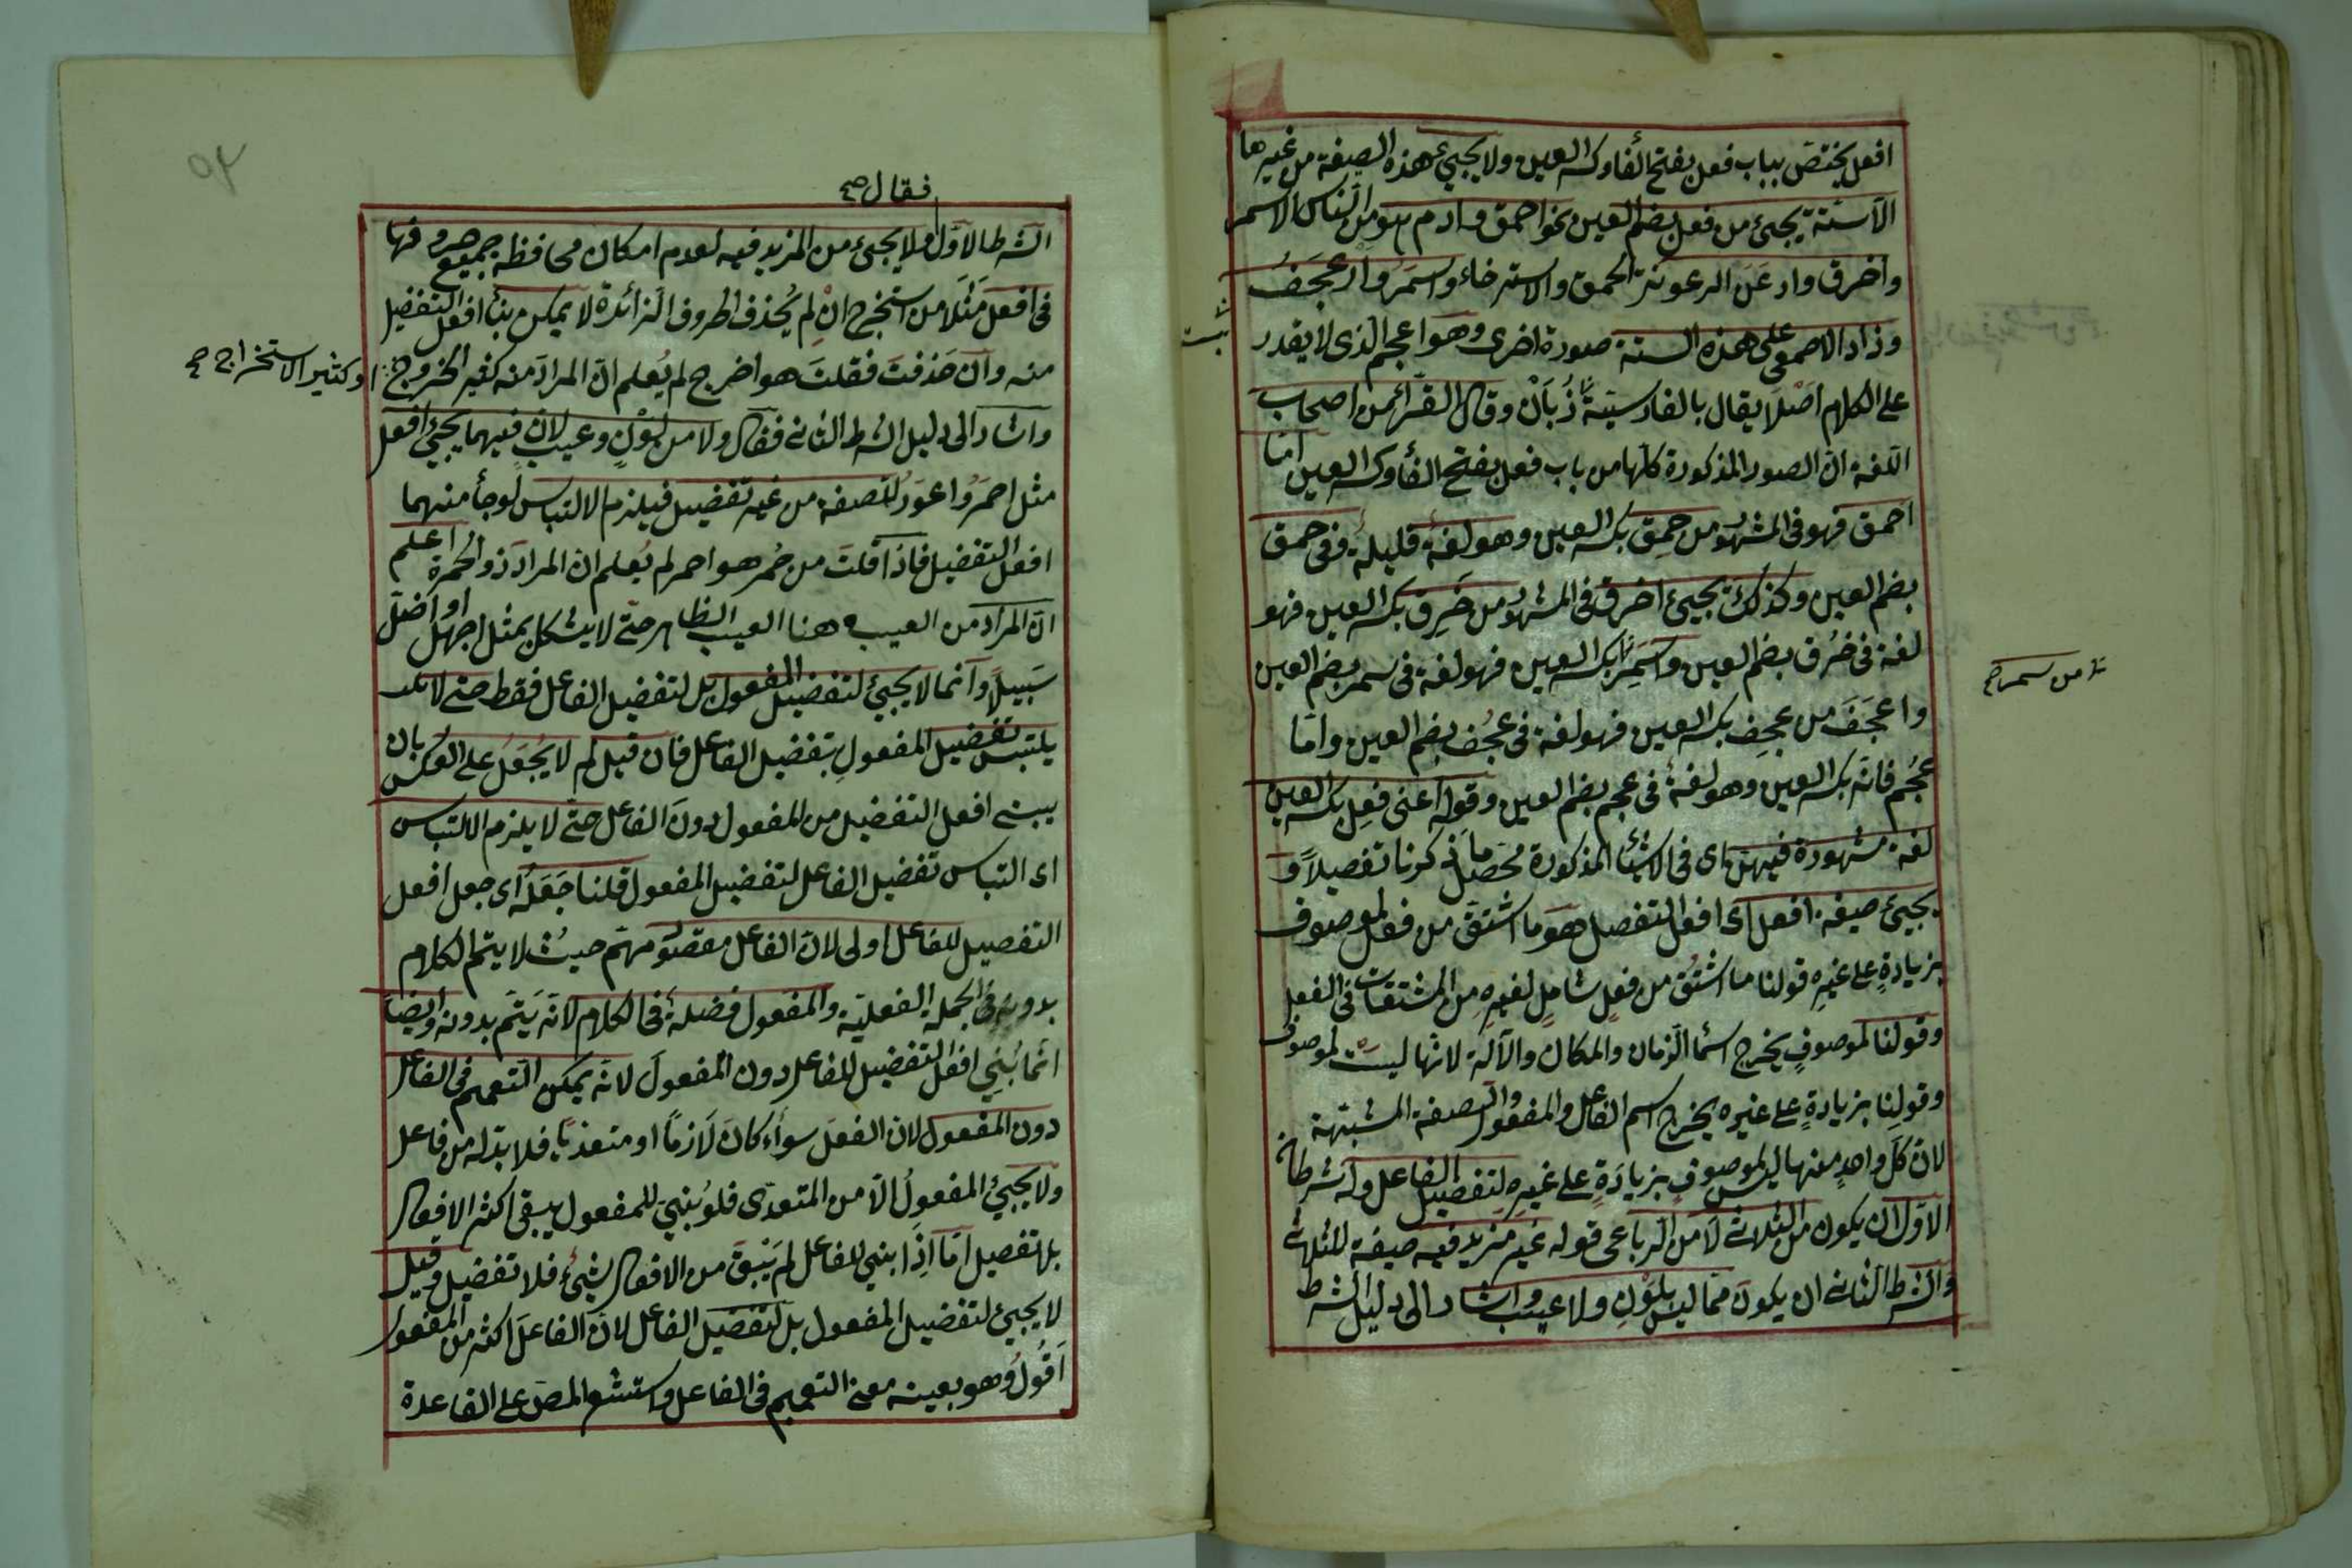 افعل يختص بباب فعل بفتح الفا وكسر العين ولا يجيئ هذه الصيغة من غيرها
الا ستة يجيئ من فعل بضم العين نحو احمق وادم هو من الناس الاسمر
واخرق وارعن الرعونة الحمق والاسترخاء واسمر واعجف
وزاد الاصمعى على هذه الستة صورة اخرى وهو اعجم الذى لا يقدر
على الكلام اصلا يقال بالفارسية زبان وقال الفراء من اصحاب
اللغة ان الصور المذكورة كلها من باب فعل بفتح الفأ وكسر العين اما
احمق فهو فى المشهور من حمق بكسر العين وهو لغة قليلة وفى حمق
بضم العين وكذلك يجيئ اخرق فى المشهور من خرق بكسر العين فهو
لغة فى خرق بضم العين واسمر بكسر العين فهو لغة فى سمر بضم العين
من سمر صح
واعجف من عجف بكسر العين فهو لغة فى عجف بضم العين واما
عجم فانه بكسر العين وهو لغة فى عجم بضم العين وقوله اعنى فعل بكسر العين
لغة مشهورة فيهن اى فى الاشيأ المذكورة محصل ما ذكرنا تفصيلا و
يجيئ صيغة افعل اى افعل التفضيل هو ما اشتق من فعل لموصوف
بزيادة على غيره قولنا ما اشتق من فعل شامل لغيره من المشتقات فى الفعل
وقولنا لموصوف يخرج اسمأ الزمان والمكان والآلة لانها ليست لموصوف
وقولنا بزيادة على غيره يخرج اسم الفاعل والمفعول والصفة المشبهة
لان كل واحد منها ليس لموصوف بزيادة على غيره لتفضيل الفاعل وله شرطان
الاول ان يكون من الثلاثى لا من الرباعى قوله غير مزيد فيه صيغة للثلاثى
والشرط الثانى ان يكون مما ليس بلون ولا عيب واشار الى دليل الشرط
فقال صح
الشرط الاول ولا يجيئ من المزيد فيه لعدم امكان محافظة جميع حروفها
فى افعل مثلا من استخرج ان لم يحذف الحروف الزائدة لا يمكن بنأ افعل التفضيل
منه وان حذفت فقلت هو اخرج لم يعلم ان المراد منه كثير الخروج
او كثير الاستخراج صح
واشار الى دليل الشرط الثانى فقال ولا من لون وعيب لان فيهما يجيئ افعل
مثل احمر واعور للصفة من غير تفضيل فيلزم الالتباس لو جأ منهما
افعل التفضيل فاذا قلت من حمر هو احمر لم يعلم ان المراد ذو الحمرة اعلم
ان المراد من العيب ههنا العيب الظاهر حتى لا يشكل بمثل اجهل او اضل
سبيلا وانما لا يجيئ لتفضيل المفعول بل لتفضيل الفاعل فقط حتى لا
يلتبس تفضيل المفعول بتفضيل الفاعل فان قيل لم لا يجعل على العكس بان
يبنى افعل التفضيل من المفعول دون الفاعل حتى لا يلزم الالتباس
اى التباس تفضيل الفاعل لتفضيل المفعول قلنا جعله اى جعل افعل
التفضيل للفاعل اولى لان الفاعل مقصود مهم حيث لا يتم الكلام
بدونه فى الجملة الفعلية والمفعول فضلة فى الكلام لانه يتم بدونه وايضا
انما بنى افعل التفضيل للفاعل دون المفعول لانه يمكن التعميم فى الفاعل
دون المفعول لان الفعل سواء كان لازما او متعديا فلا بد له من فاعل
ولا يجيئ المفعول الا من المتعدى فلو بنى للمفعول يبقى اكثر الافعال
بلا تفضيل اما اذا بنى للفاعل لم يبق من الافعال شيئ فلا تفضيل وقيل
لا يجيئ لتفضيل المفعول بل لتفضيل الفاعل لان الفاعل اكثر من المفعول
اقول وهو بعينه معنى التعميم فى الفاعل واستشعر المص على القاعدة